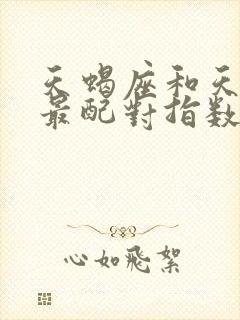 天蝎座和天
最配對指数
心如飛絮